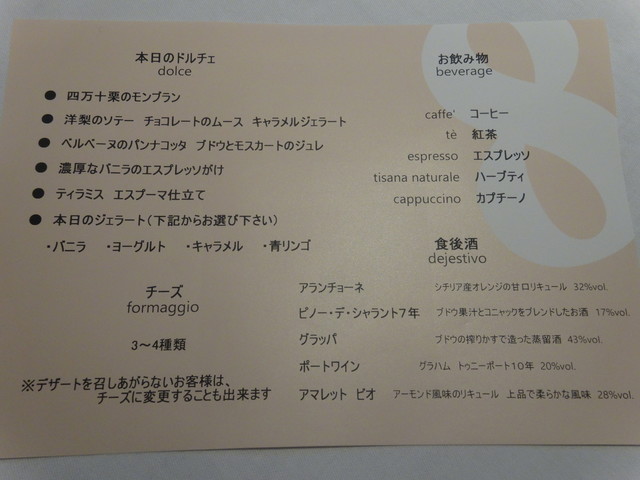 本日のドルチェ
dolce
● 四万十栗のモンブラン
● 洋梨のソテー チョコレートのムース キャラメルジェラート
● ベルベーヌのパンナコッタ ブドウとモスカートのジュレ
● 濃厚なバニラのエスプレッソがけ
● ティラミス エスプーマ仕立て
● 本日のジェラート(下記からお選び下さい)
・バニラ ・ヨーグルト ・キャラメル ・青リンゴ
チーズ
formaggio
3～4種類
※デザートを召しあがらないお客様は、
チーズに変更することも出来ます
お飲み物
beverage
caffe' コーヒー
tè 紅茶
espresso エスプレッソ
tisana naturale ハーブティ
cappuccino カプチーノ
食後酒
dejestivo
アランチョーネ シチリア産オレンジの甘口リキュール 32%vol.
ピノー・デ・シャラント7年 ブドウ果汁とコニャックをブレンドしたお酒 17%vol.
グラッパ ブドウの搾りかすで造った蒸留酒 43%vol.
ポートワイン グラハム トゥニーポート10年 20%vol.
アマレット ビオ アーモンド風味のリキュール 上品で柔らかな風味 28%vol.